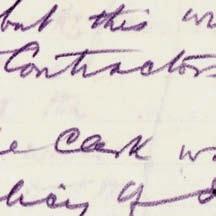 but this w
Contractors
e Cask w
licy of